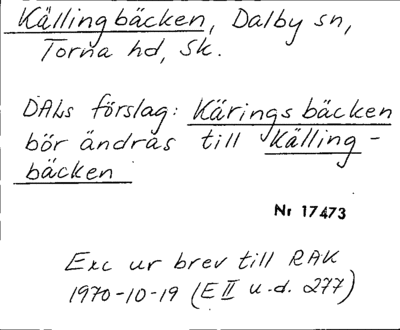 Källingbäcken, Dalby sn,
Torna hd, Sk.
DALs förslag: Käringsbäcken
bör ändras till Källing-
bäcken
Nr 17473
Exc ur brev till RAK
1970-10-19 (E II u.d. 277)